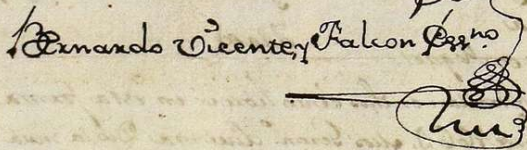 Bernardo Vicente, y Falcon Essno.